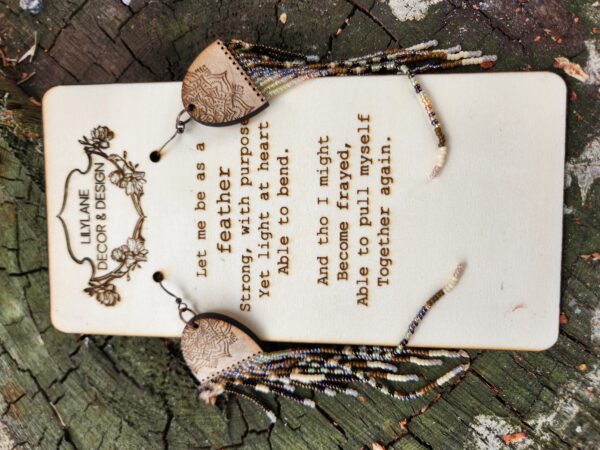 LILYLANE
DECOR & DESIGN
Let me be as a
feather
Strong, with purpose
Yet light at heart
Able to bend.
And tho I might
Become frayed,
Able to pull myself
Together again.